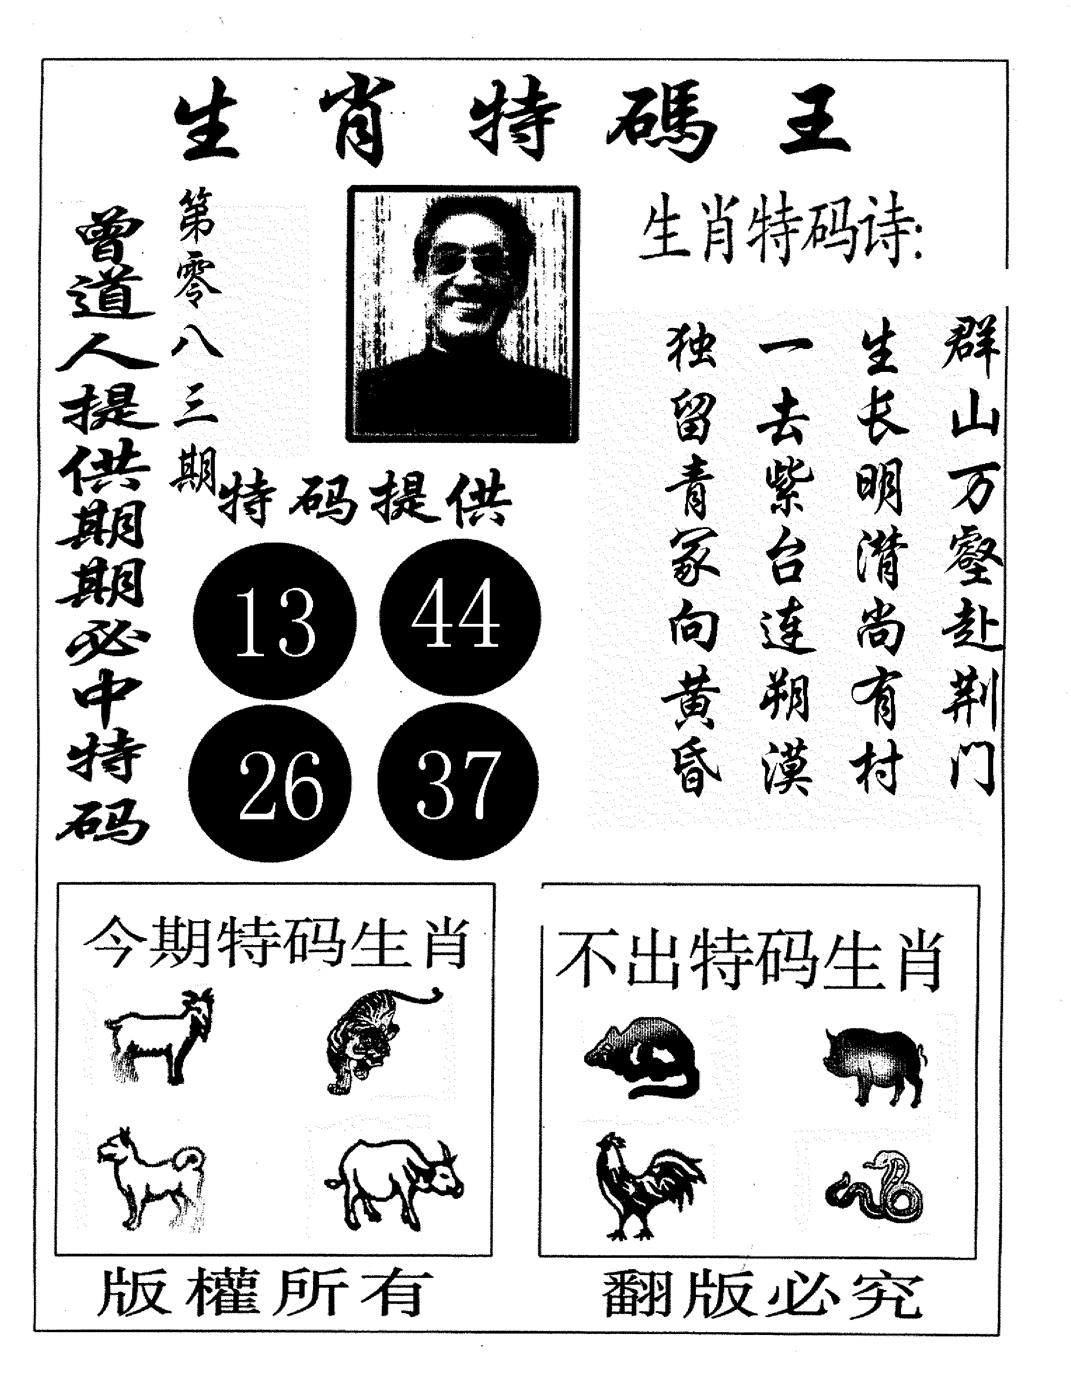 生肖特碼王
曾道人提供期期必中特码
第零八三期
生肖特码诗:
群山万壑赴荆门
生长明潸尚有村
一去紫台连朔漠
独留青冢向黄昏
特码提供
13 44
26 37
今期特码生肖
不出特码生肖
版權所有
翻版必究